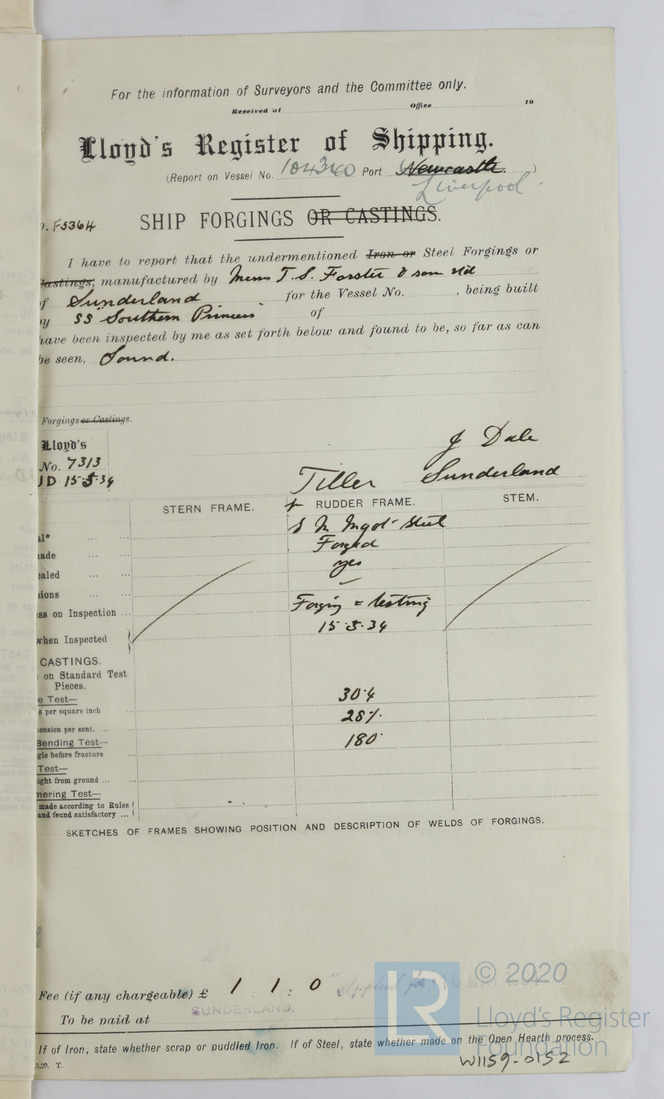 For the information of Surveyors and the Committee only.
Received at Office 19
Lloyd's Register of Shipping.
(Report on Vessel No. 104340 Port Newcastle. )
Liverpool
o. F5364 SHIP FORGINGS OR CASTINGS.
I have to report that the undermentioned Iron or Steel Forgings or
Castings, manufactured by Mess T. S. Forster & son Ltd
of Sunderland for the Vessel No. , being built
by SS "Southern Princess" of
have been inspected by me as set forth below and found to be, so far as can
be seen, Sound.
Forgings or Castings.
Lloyd's
No. 7313
JD 15.5.34
J Dale
Sunderland
Tiller
STERN FRAME. RUDDER FRAME. STEM.
al* S M Ingot Steel
ade Forged
ealed yes
sions
ss on Inspection Forging & testing
when Inspected 15.5.34
CASTINGS.
on Standard Test
Pieces.
e Test— 30.4
s per square inch
ension per cent. 28%
Bending Test— 180
gle before fracture
Test—
ight from ground
mering Test—
made according to Rules
and found satisfactory
SKETCHES OF FRAMES SHOWING POSITION AND DESCRIPTION OF WELDS OF FORGINGS.
Fee (if any chargeable) £ 1 : 1 : 0 Applied for
SUNDERLAND.
To be paid at
If of Iron, state whether scrap or puddled Iron. If of Steel, state whether made on the Open Hearth process.
3.29. T.
W1159-0152
LR © 2020
Lloyd's Register
Foundation